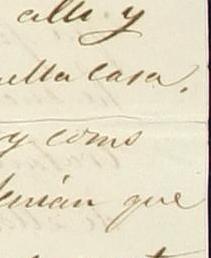 alli y
ella casa.
y como
tenian que